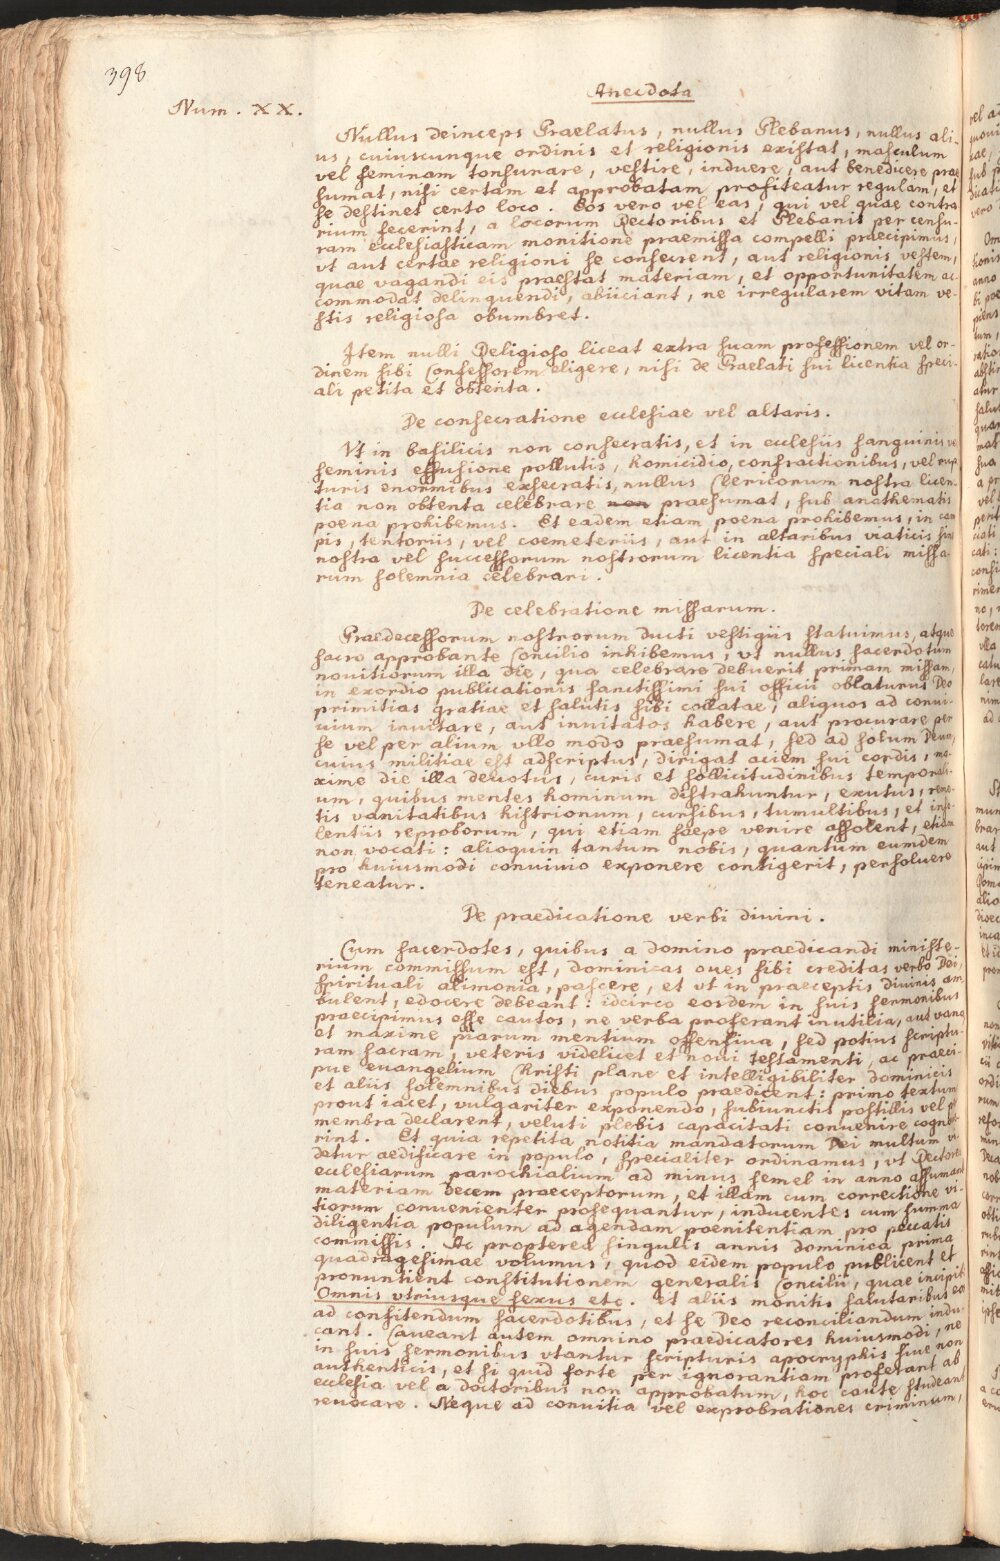 398
Anecdota
Num. XX.
Nullus deinceps Praelatus, nullus Plebanus, nullus ali-
us, cuiuscunque ordinis et religionis existat, masculum
vel feminam tonsurare, vestire, induere, aut benedicere prae
sumat, nisi certam et approbatam profiteatur regulam, et
se destinet certo loco. Eos vero vel eas, qui vel quae contra
rium fecerint, a locorum Rectoribus et Plebanis per censu-
ram ecclesiasticam monitione praemissa compelli praecipimus,
vt aut certae religioni se consecrent, aut religionis vestem,
quae vagandi eis praestat materiam, et opportunitatem ac-
commodat delinquendi, abiiciant, ne irregularem vitam ve-
stis religiosa obumbret.
Item nulli Religioso liceat extra suam professionem vel or-
dinem sibi Confessorem eligere, nisi de Praelati sui licentia speci-
ali petita et obtenta.
De consecratione ecclesiae vel altaris.
Vt in basilicis non consecratis, et in ecclesiis sanguinis ve
seminis effusione pollutis, homicidio, confractionibus, vel rup
turis enormibus exsecratis, nullus Clericorum nostra licen-
tia non obtenta celebrare non praesumat, sub anathematis
poena prohibemus. Et eadem etiam poena prohibemus, in cam
pis, tentoriis, vel coemeteriis, aut in altaribus viaticis sine
nostra vel successorum nostrorum licentia speciali missa-
rum solemnia celebrari.
De celebratione missarum.
Praedecessorum nostrorum ducti vestigiis statuimus, atque
sacro approbante Concilio inhibemus, vt nullus sacerdotum
nouitiorum illa die, qua celebrare debuerit primam missam,
in exordio publicationis sanctissimi sui officii oblaturus Deo
primitias gratiae et salutis sibi collatae, aliquos ad conui-
uium inuitare, aut inuitatos habere, aut procurare per
se vel per alium vllo modo praesumat, sed ad solum Deum,
cuius militiae est adscriptus, dirigat aciem sui cordis, ma-
xime die illa deuotus, curis et sollicitudinibus temporali-
um, quibus mentes hominum distrahuntur, exutus, remo-
tis vanitatibus histrionum, cursibus, tumultibus, et inso-
lentiis reproborum, qui etiam saepe venire assolent, etiam
non vocati: alioquin tantum nobis, quantum eumdem
pro huiusmodi conuiuio exponere contigerit, persoluere
teneatur.
De praedicatione verbi diuini.
Cum sacerdotes, quibus a domino praedicandi ministe-
rium commissum est, dominicas oues sibi creditas verbo Dei,
spirituali alimonia, pascere, et vt in praeceptis diuinis am
bulent, edocere debeant: idcirco eosdem in suis sermonibus
praecipimus esse cautos, ne verba proferant inutilia, aut vana
et maxime piarum mentium offensiua, sed potius scriptu-
ram sacram, veteris videlicet et noui testamenti, ac praeci-
pue euangelium Christi plane et intelligibiliter dominicis
et aliis solemnibus diebus populo praedicent: primo textum
prout iacet, vulgariter exponendo, subiunctis postillis vel per
membra declarent, veluti plebis capacitati conuenire cognoue-
rint. Et quia repetita notitia mandatorum Dei multum vi-
detur aedificare in populo, specialiter ordinamus, vt Rectores
ecclesiarum parochialium ad minus semel in anno assumant
materiam decem praeceptorum, et illam cum correctione vi-
tiorum conuenienter prosequantur, inducentes cum summa
diligentia populum ad agendam poenitentiam pro peccatis
commissis. Ac propterea singulis annis dominica prima
quadragesimae volumus, quod eidem populo publicent et
pronuntient constitutionem generalis Concilii, quae incipit
Omnis vtriusque sexus etc. et aliis monitis salutaribus eos
ad confitendum sacerdotibus, et se Deo reconciliandum indu-
cant. Caueant autem omnino praedicatores huiusmodi, ne
in suis sermonibus vtantur scripturis apocryphis siue non
authenticis, et si quid forte per ignorantiam proferant ab
ecclesia vel a doctoribus non approbatum, hoc caute studeant
reuocare. Neque ad conuitia vel exprobrationes criminum,